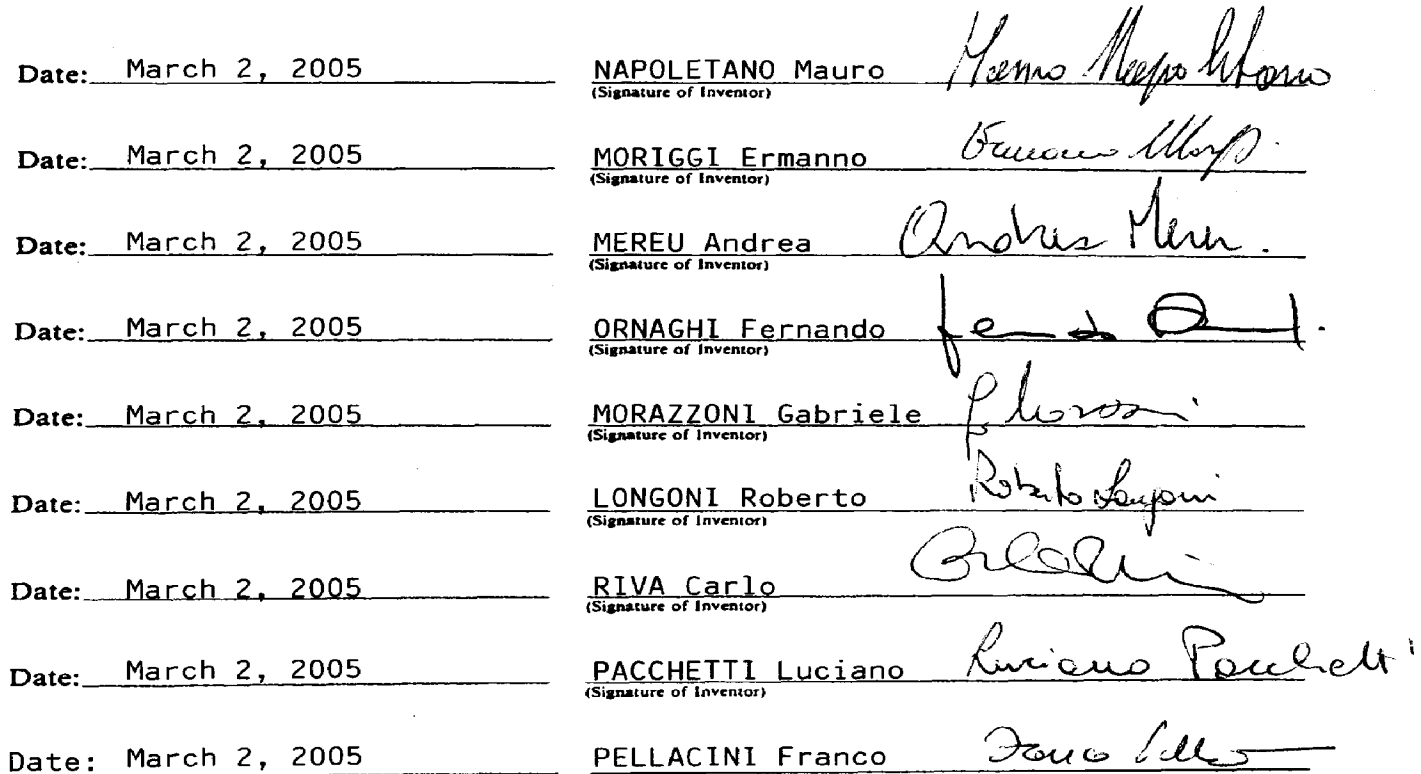 Date: March 2, 2005 NAPOLETANO Mauro Mauro Napoletano
(Signature of Inventor)
Date: March 2, 2005 MORIGGI Ermanno Ermanno
(Signature of Inventor)
Date: March 2, 2005 MEREU Andrea Andrea Mereu
(Signature of Inventor)
Date: March 2, 2005 ORNAGHI Fernando
(Signature of Inventor)
Date: March 2, 2005 MORAZZONI Gabriele
(Signature of Inventor)
Date: March 2, 2005 LONGONI Roberto Roberto Longoni
(Signature of Inventor)
Date: March 2, 2005 RIVA Carlo
(Signature of Inventor)
Date: March 2, 2005 PACCHETTI Luciano Luciano Pacchetti
(Signature of Inventor)
Date: March 2, 2005 PELLACINI Franco Franco